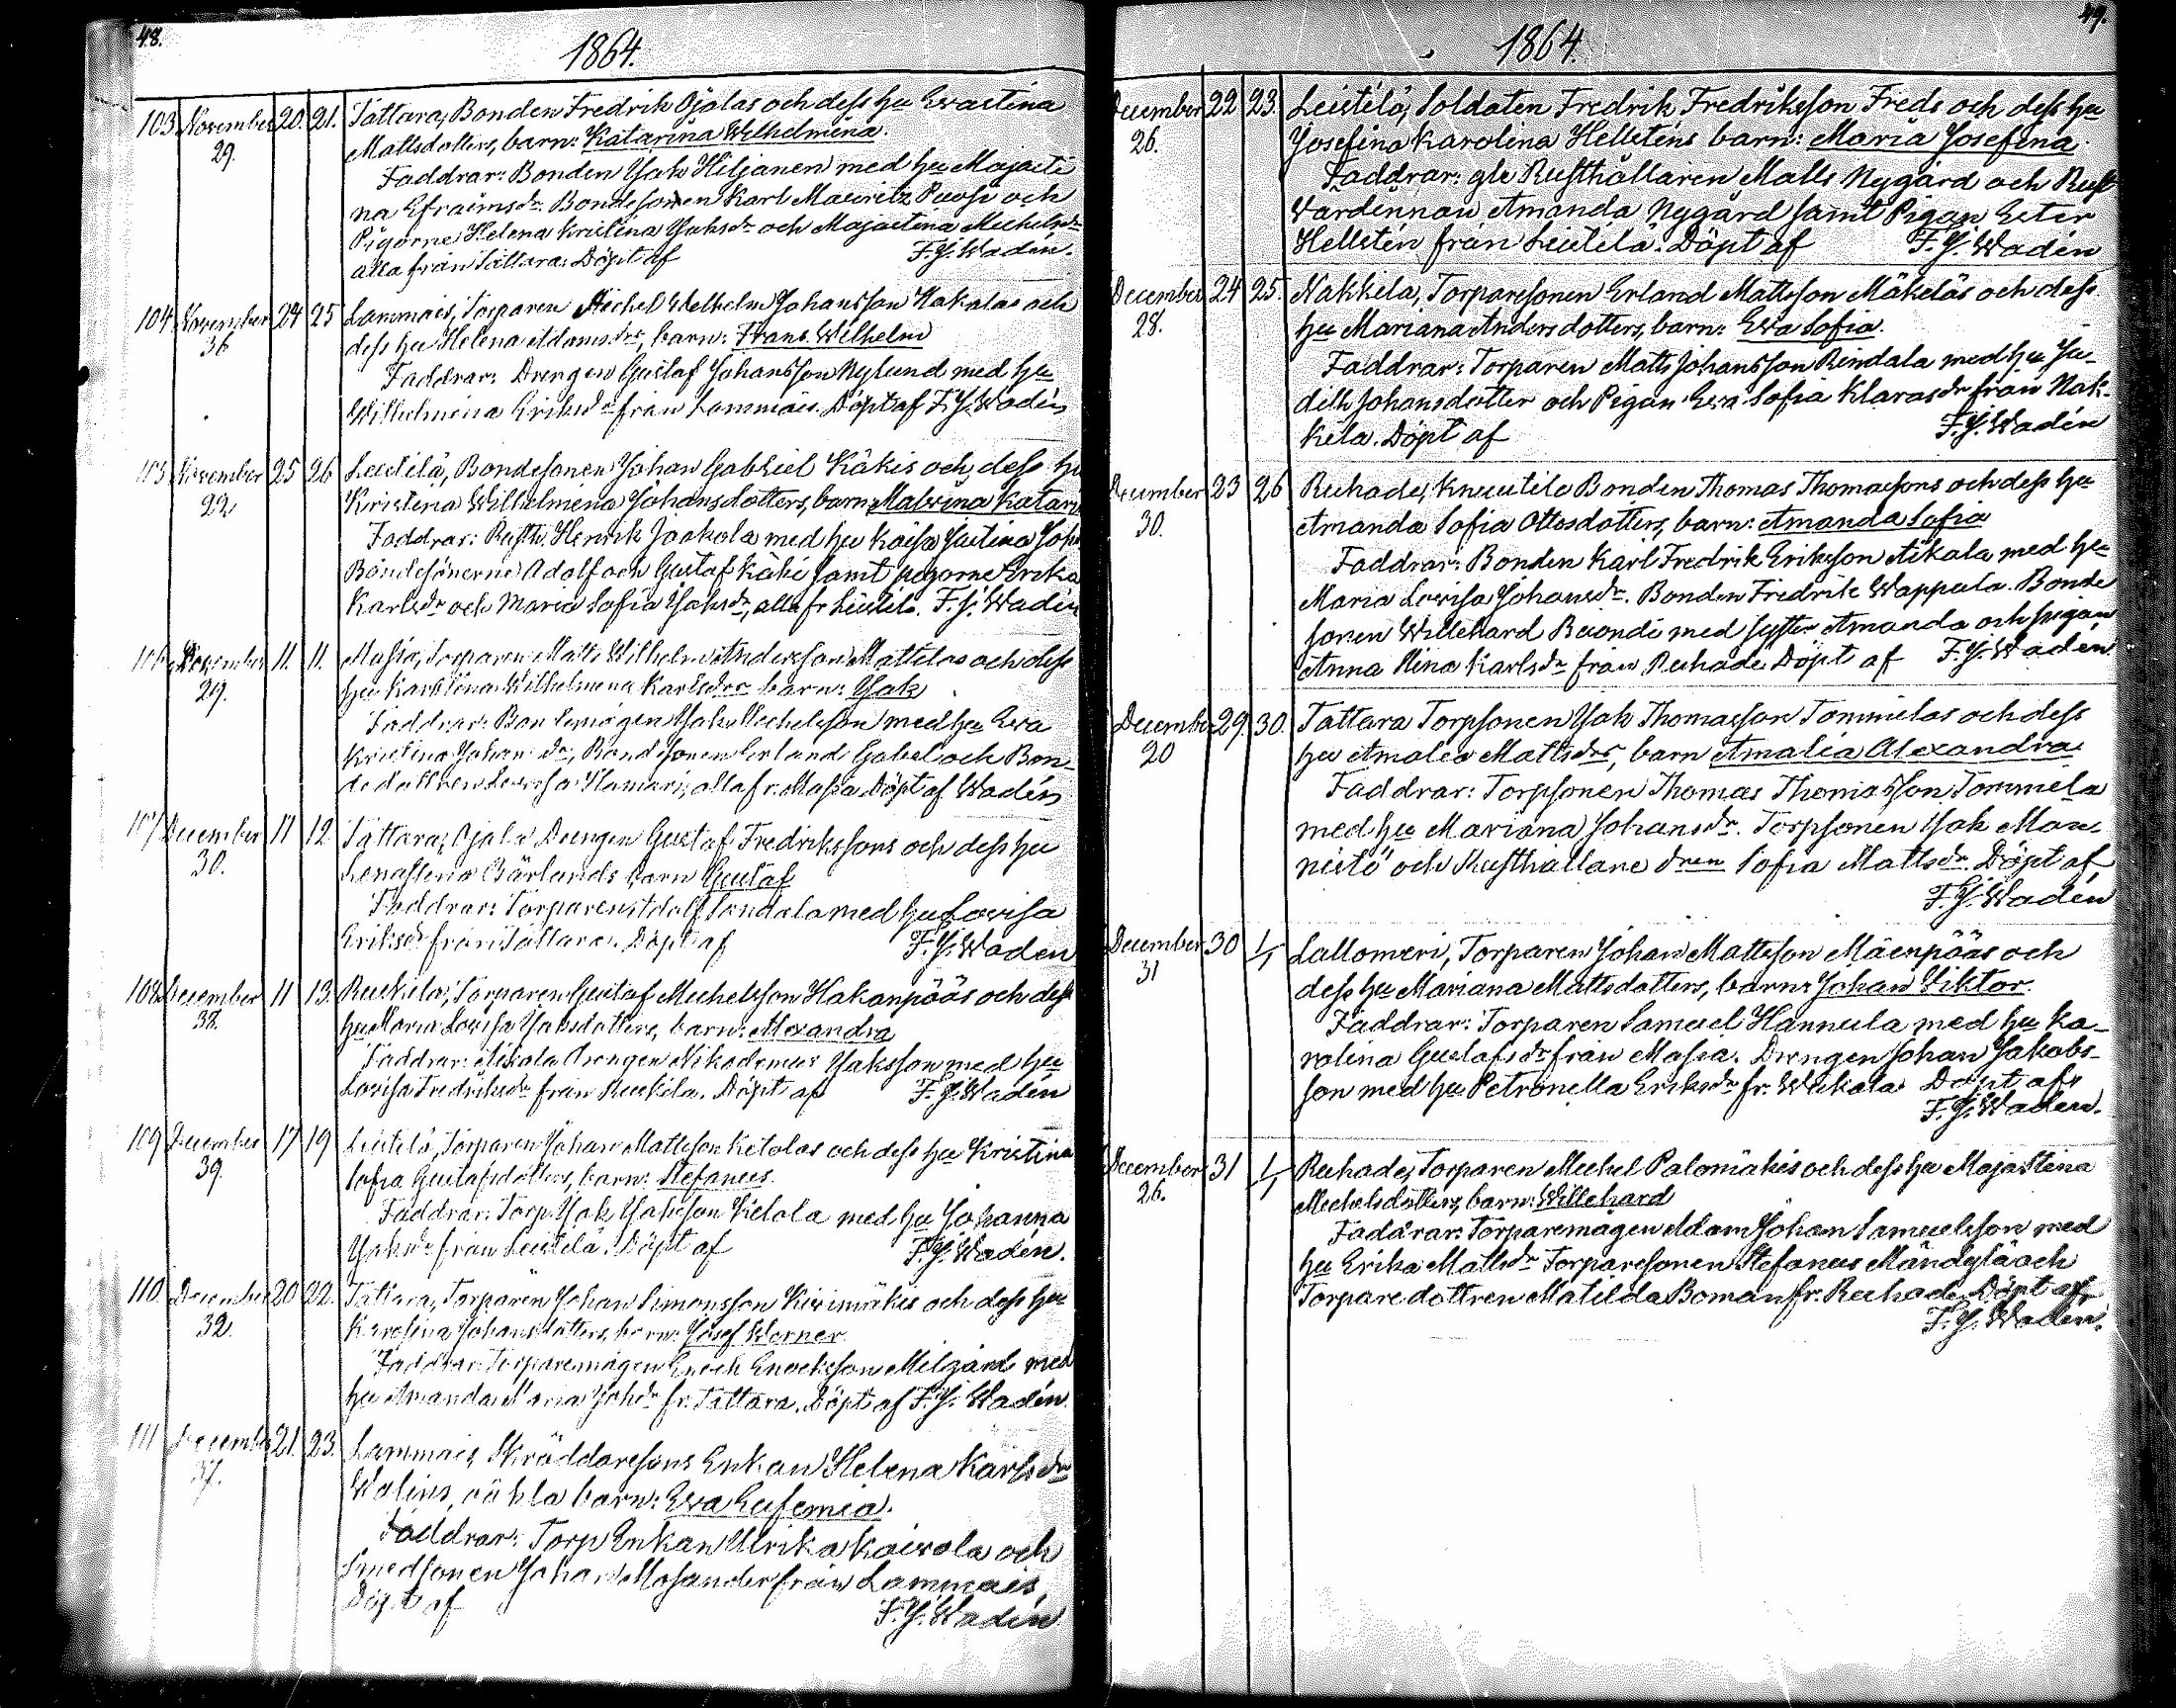 48.
1864.
103 November 20. 21. Tattara, Bonden Fredrik Ojalas och dess hu Evastina
29. Mattsdotters, barn: Katarina Wilhelmina.
Faddrar: Bonden Isak Hiljanen med hu Majasti
na Efraimsdr. Bondesonen Karl Mauritz Puosi och
Pigorne Helena Kristina Isaksdr och Majastina Michelsdr
alla från Tattara. Döpt af F. J. Wadén.
104 November 24 25 Lammais, Torparen Michel Wilhelm Johansson Kakulas och
36 dess hu Helena Adamsdrs, barn: Frans Wilhelm
Faddrar: Drengen Gustaf Johansson Nylund med hu
Wilhelmina Eriksdr från Lammais. Döpt af F. J. Wadén
105 November 25 26 Leistilä, Bondesonen Johan Gabriel Käkis och dess hu
22 Kristina Wilhelmina Johansdotters, barn: Malvina Katari
Faddrar: Rusth. Henrik Jaakola med hu Kaisa Justina Joh
Bondesönerne Adolf och Gustaf Käki samt pigorne Erika
Karlsdr och Maria Sofia Isaksdr, alla fr Leistilä. F. J. Wadén
106 December 11. 11. Massia, Torparen Matts Wilhelm Andersson Mattilas och dess
29. hu Karolina Wilhelmina Karlsdrs barn: Isak
Faddrar: Bondemågen Isak Michelsson med hu Eva
Kristina Johansdr, Bondesonen Erland Gabel och Bon-
dedottren Lovisa Hamari, alla fr. Massia Döpt af Wadén
107 December 11 12 Tattara, Ojala Drengen Gustaf Fredrikssons och dess hu
30. Lenastina Bärlunds barn Gustaf
Faddrar: Torparen Adolf Sandala med hu Lovisa
Eriksdr från Tattara. Döpt af F. J. Wadén
108 December 11 13. Ruskila, Torparen Gustaf Michelsson Hakanpääs och dess
38. hu Maria Lovisa Isaksdotters, barn: Alexandra
Faddrar: Aikala Drengen Nikodemus Isaksson med hu
Lovisa Fredriksdr från Ruskila. Döpt af F. J. Wadén
109 December 17 19 Leistilä, Torparen Johan Mattsson Ketolas och dess hu Kristina
39. Sofia Gustafsdotters, barn: Stefanus.
Faddrar: Torp. Isak Isaksson Ketola med hu Johanna
Isaksdr från Leistilä. Döpt af F. J. Wadén.
110 December 20 22. Tattara, Torparen Johan Simonsson Kivimäkis och dess hu
32. Karolina Johansdotters, barn: Josef Werner
Faddrar: Torparemågen Enoch Enocksson Melgand med
hu Amanda Maria Johdr fr. Tattara. Döpt af F. J. Wadén.
111 December 21. 23. Lammais, Skräddaresons Enkan Helena Karlsdr
37. Walins, oäkta barn: Eva Eufemia.
Faddrar: Torp Enkan Ulrika Koivola och
Smedsonen Johan Mosander från Lammais,
Döpt af F. J. Wadén
49.
1864.
December 22 23. Leistilä, Soldaten Fredrik Fredriksson Freds och dess hu
26. Josefina Karolina Hellstens barn: Maria Josefina.
Faddrar: gle Rusthållaren Matts Nygård och Rust
värdinnan Amanda Nygård samt Pigan Ester
Hellsten från Leistilä. Döpt af F. J. Wadén
December 24 25. Nakkila, Torparesonen Erland Mattsson Mäkeläs och dess
28. hu Mariana Andersdotters, barn: Eva Sofia.
Faddrar: Torparen Matts Johansson Rindala med hu Ju-
dith Johansdotter och Pigan Eva Sofia Klarasdr från Nak-
kila. Döpt af F. J. Wadén
December 23 26 Ruhade, Knuutila Bonden Thomas Thomassons och dess hu
30. Amanda Sofia Ottosdotters, barn: Amanda Sofia
Faddrar: Bonden Karl Fredrik Eriksson Aikala med hu
Maria Lovisa Johansdr. Bonden Fredrik Wappula. Bonde
sonen Willehard Beiondi med syster Amanda och pigan
Anna Stina Karlsdr från Ruhade Döpt af F. J. Wadén
December 29. 30. Tattara Torpsonen Isak Thomasson Tommilas och dess
20 hu Amalia Mattsdrs, barn Amalia Alexandra
Faddrar: Torpsonen Thomas Thomasson Tommila
med hu Mariana Johansdr. Torpsonen Isak Man-
nistö och Rusthållare dren Sofia Mattsdr. Döpt af
F. J. Wadén
December 30 1/1 Lallomeri, Torparen Johan Mattsson Mäenpääs och
31 dess hu Mariana Mattsdotters, barn: Johan Viktor.
Faddrar: Torparen Samuel Hannula med hu Ka-
rolina Gustafsdr från Massia. Drengen Johan Jakobs-
son med hu Petronella Eriksdr fr. Wiikala Döpt af
F. J. Wadén.
December 31 1/1 Ruhade, Torparen Michel Palomäkis och dess hu Majastina
26. Michelsdotters, barn: Willehard
Faddrar: Torparemågen Adam Johan Samuelsson med
hu Erika Mattsdr Torparesonen Stefanus Mändylä och
Torparedottren Matilda Boman fr. Ruhade Döpt af
F. J. Wadén.